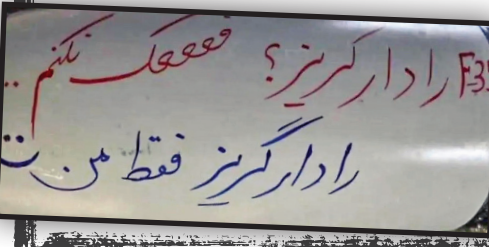 F35 رادار گریز؟ فعععک نکنم..
رادار گریز فقط من